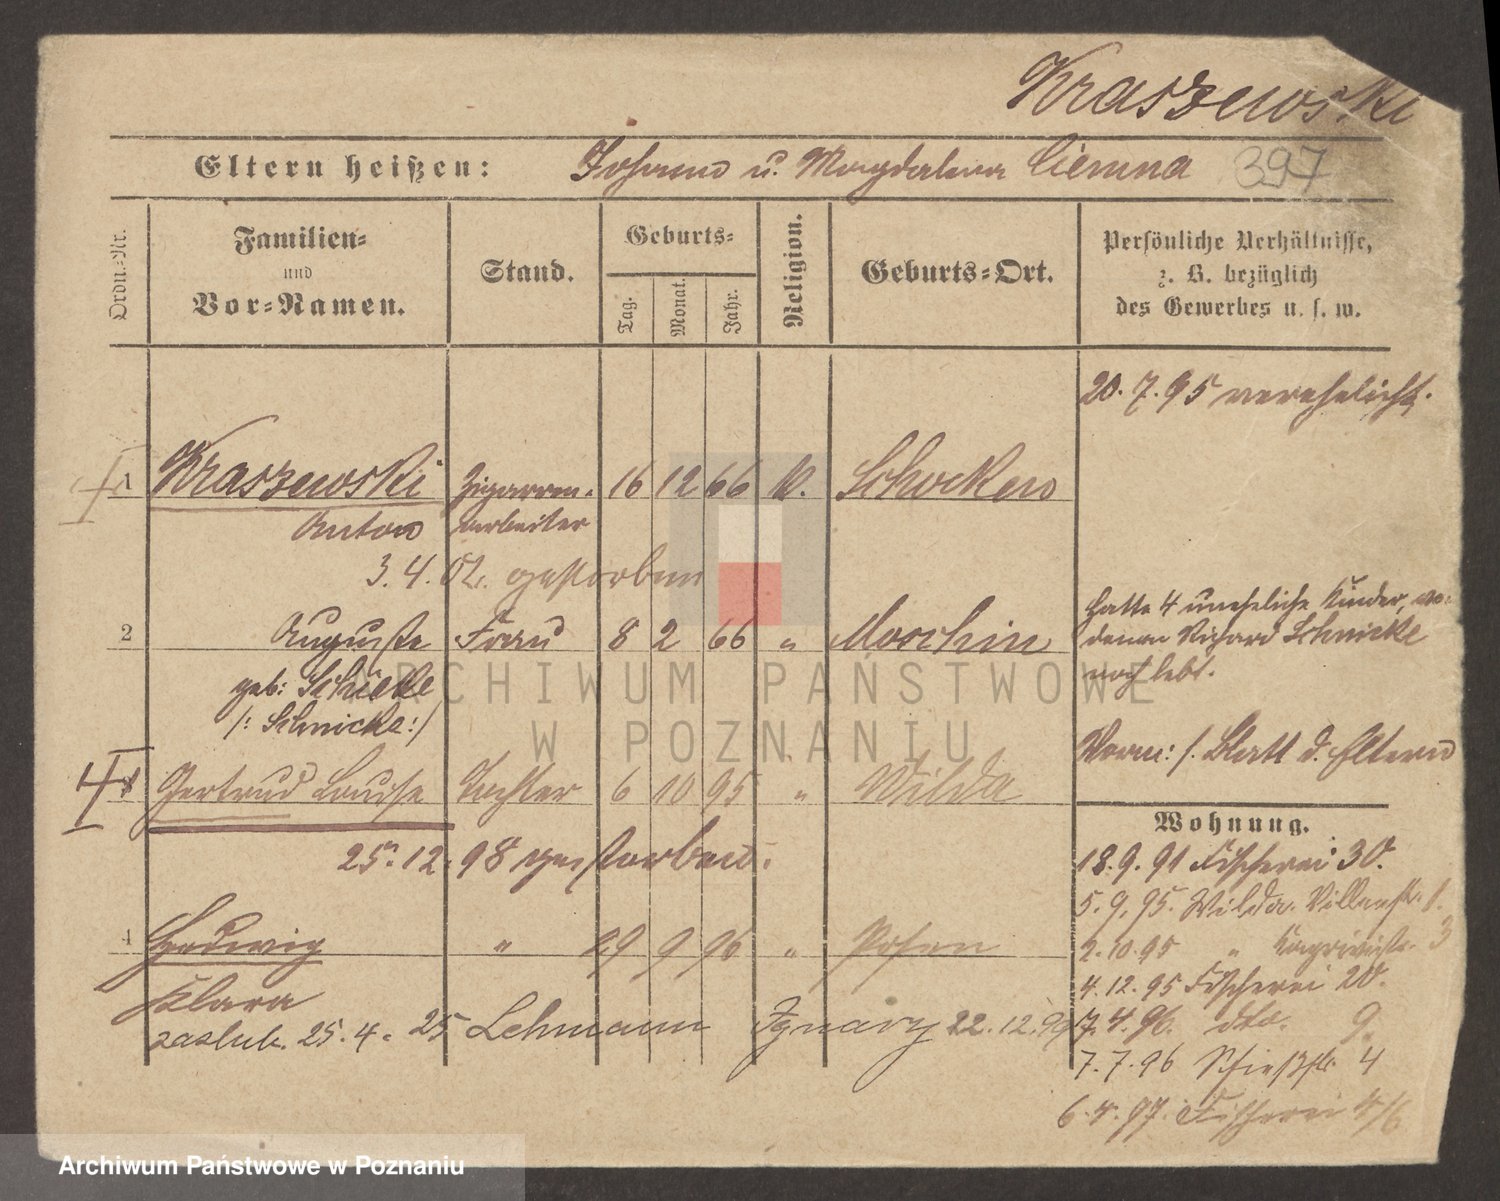 Kraszewski
Eltern heißen: Johann u. Magdalena Ciemna 397
Ordn.-Nr.
Familien-
und
Vor-Namen.
Stand.
Geburts-
Tag.
Monat.
Jahr.
Religion.
Geburts-Ort.
Persönliche Verhältnisse,
z. B. bezüglich
des Gewerbes u. s. w.
20. 7. 95 verehelicht.
1 Kraszewski Zigarren- 16 12 66 k. Schocken
Anton arbeiter
3. 4. 02. gestorben
hatte 4 uneheliche Kinder, wo-
2 Auguste Frau 8 2 66 " Moschin
denen Rigard Schnicke
geb: Schücke
noch lebt.
/: Schnicke :/
Verm: s. Blatt d. Eltern
Gertrud Louise Tochter 6 10 95 " Wilda
25. 12. 98 gestorben.
Wohnung.
18. 9. 91 Fischerei 30.
5. 9. 95. Wilda. Villenstr. 1.
4 Hedwig " 29 9 96 " Posen
2. 10. 95 " 3
Klara
4. 12. 95 Fischerei 20.
zaslub. 25. 4. 25 Lehmann Ignacy 22. 12. 99
7. 4. 96. dto. 9.
7. 7. 96 Schießstr 4
6. 4. 97. Fischerei 4/6
ARCHIWUM PAŃSTWOWE
W POZNANIU
Archiwum Państwowe w Poznaniu